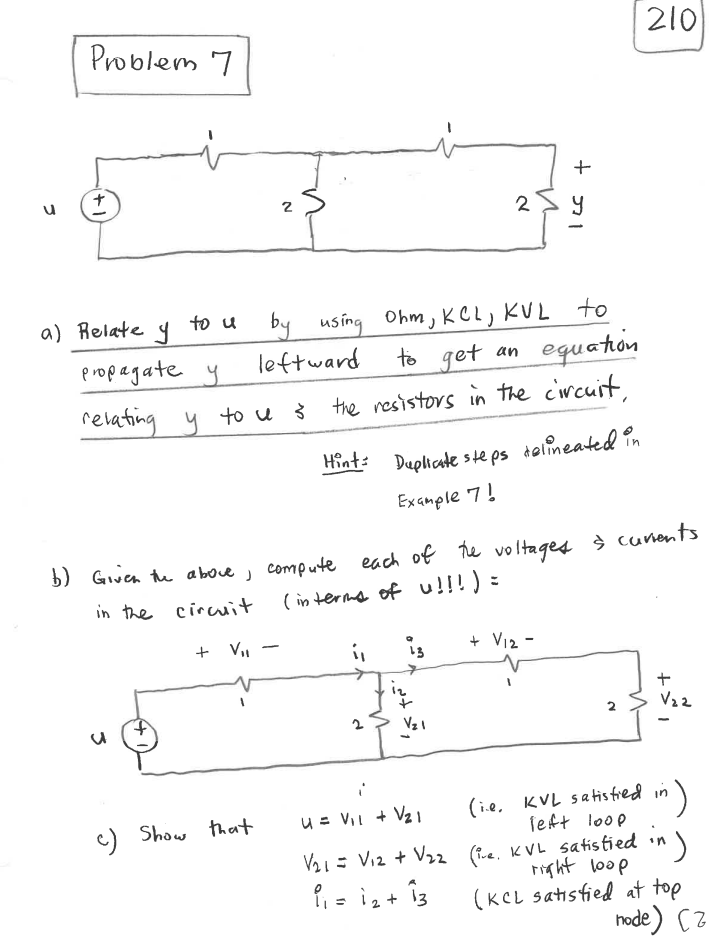 210
Problem 7
1 1
u + - 2 2 + y -
a) Relate y to u by using Ohm, KCL, KVL to
propagate y leftward to get an equation
relating y to u & the resistors in the circuit.
Hint: Duplicate steps delineated in
Example 7!
b) Given the above, compute each of the voltages & currents
in the circuit (in terms of u!!!) =
+ V11 - i1 i3 + V12 -
1 i2 1
u + - 2 + V21 - 2 + V22 -
c) Show that u = V11 + V21 (i.e. KVL satisfied in left loop)
V21 = V12 + V22 (i.e. KVL satisfied in right loop)
i1 = i2 + i3 (KCL satisfied at top node)